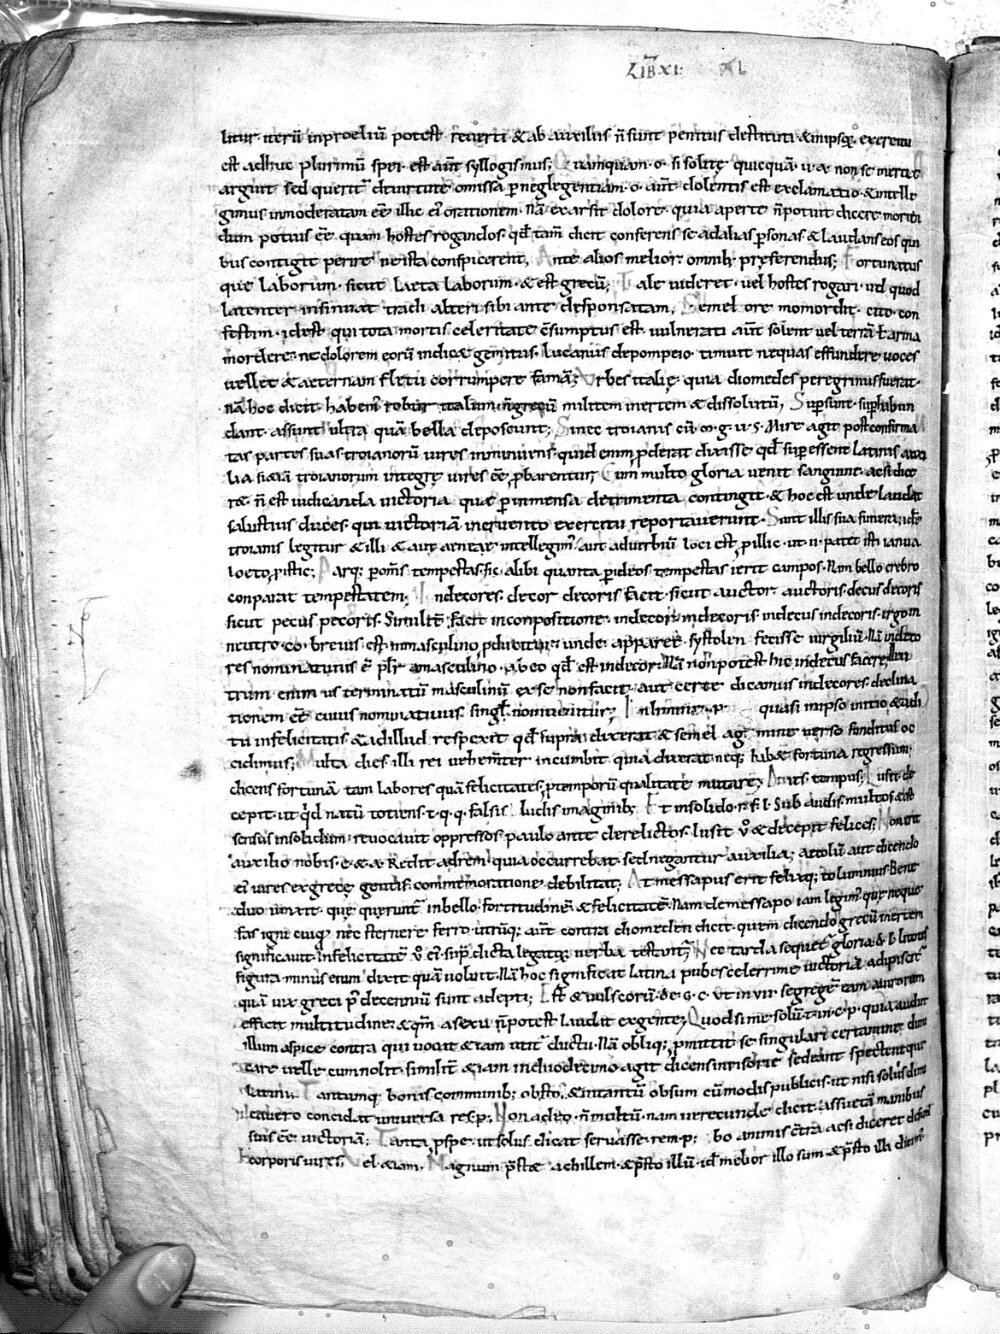 LIB XI: XL
litur· iterū inproeliū potest reuerti & ab auxiliis n̄ sunt penitus destituti & inipsoq; exercitu
est adhuc plurimū spei· est aut̄ syllogismus; Quamquam· o· si solitę quicquā· u· a· non se mereri
arguit sed querit̄ deuirtute omissa p neglegentiam· o· aut̄ dolentis est exclamatio & intelle
gimus inmoderatam eē illic ei orationem· Nā exarsit dolore· quia aperte n̄potuit dicere morien
dum potius eē quam hostes rogandos· qd̄ tam̄ dicit conferens se adalias psonas & laudans eos qui
bus contigit perire ne ista conspicerent, Ante alios melior· omnib; pręferendus; Fortunatus
quę laborum· sicut laeta laborum· & est grecū; Tale uideret· uel hostes rogari· uel quod
latenter insinuat tradi alteri sibi ante desponsatam, Semel ore momordit· cito con
festim· idest qui tota mortis celeritate c̄sumptus est uulnerati aut̄ solent uel terrā ł arma
mordere· ne dolorem eorū indicæ gemitus· Lucanus depompeio· timuit nequas effundere uoces
uellet & aeternam fletu corrumpere famā; Vrbes italię· quia diomedes peregrinus fuerat·
nā hoc dicit· habem' robur italum· n̄ grecū militem inertem & dissolutū, Supsunt· suphabun
dant· assunt ultra quā bella deposcunt; Sinec troianis cū· m· g· u· s· Mire agit post confirma
tas partes suas troianorū uires inminuens· quid enim pderat dixisse qd̄ supessent latinis auxi
lia si etiā troianorum integrę uires eē pbarentur; Cum multo gloria uenit sanguine· ac si dice
ræ· n̄ est iudicanda uictoria quæ p inmensa detrimenta contingit· & hoc est unde laudat
salustius duces· qui uictoriā incruento exercitu reportauerunt· Sunt illis sua funera;
troianis legitur & illi & aut
loeto, p istic; Parq; p om̄s tempestas· sic alibi quanta p ideos tempestas ierit campos· Nam bello crebro
conparat tempestatem; Indecores· decor decoris facit· sicut auctor auctoris· decus decoris
sicut pecus pecoris· Similit̄ facit inconpositione· indecor indecoris· indecus indecoris· ergo in
neutro· co· breuis est· inmasculino, pducitur· unde apparet systolen fecisse uirgiliū· Nā indeco
res nominatiuus ē plr̄ amasculino· ab eo qd̄ est indecor· Nā non potest hic indecus facere, neu
trum enim us terminatū masculinū ex se non facit· aut certe dicamus indecores· declina
tionem eē cuius nominatiuus singl̄ non inuenitur; In limine· p· quasi in ipso initio & adi
tu infelicitatis & ad illud respexit qd̄ supra dixerat & semel ag mine uerso funditus oc
cidimus; Multa dies· illi rei uehemt̄er incumbit quia dixerat neq; habæ fortuna regressum;
dicens fortunā tam labores quā felicitates, p temporū qualitate mutare; Dantis tempus; Lusit· de
cepit· ut qd̄ natū totiens· t· q· q· falsis ludis imaginib; Et insolido· r· f· l· Sub audis· multos & est
sensus insolidum· reuocauit oppressos· paulo ante derelictos· lusit ū & decepit felices; Non erit
auxilio nobis· e· & a· Redit ad rem· quia occurrebat· sed negantur auxilia; aetolū aut̄ dicendo
ei uires ex grecę gentis commemoratione debilitat; At messapus erit felixq; tolumnius Bene
duo unxit· quę querunt̄ inbello· fortitudinē & felicitatē· Nam de messapo iam legim' quę neque
fas igni cuiq; nec sternere ferro· utrūq; aut̄ contra diomeden dicit· quem dicendo grecū inertem
significauit infelicitatē ū ei· sup dicta legatiq; uerba testant̄; Nec tarda sequet̄ gloria· d· l· litotes
figura· minus enim dixit quā uoluit· Nā hoc significat latina pubes celerrime uictoriā adipiscit̄
quā uix greci p decenniū sunt adepti; Est & uulscorū· de· g· c· Vt in· vii· segregē eam auxorum
efficit multitudine· & qm̄ asexu n̄potest laudat ex gente; Quod si me· solū· t· in· c· p· quia audiit
illum aspice contra qui uocat & iam utit̄ dictu· Nā obliq; pmittit se singulare certamine dimi
care uelle cum nolit· similit̄ etiam induodecimo agit dicens inrisorie sedeant spectentque
latini; Tantumq; bonis communib; obsto, & intantū obsum cūmodis publicis· ut nisi solus dimi
cauero concidat uniuersa res· p; Non adeo· n̄ multū· nam uerecunde dicit· assuetā manibus
suis eē uictoriā; Tanta pspe· ut solus dicat seruasse rem· p; Ibo animis c̄tra ac si diceret
corporis uires; Vel etiam, Magnum p̄stæ achillem· & p̄sto illū· id ē melior illo sum & p̄sto illi